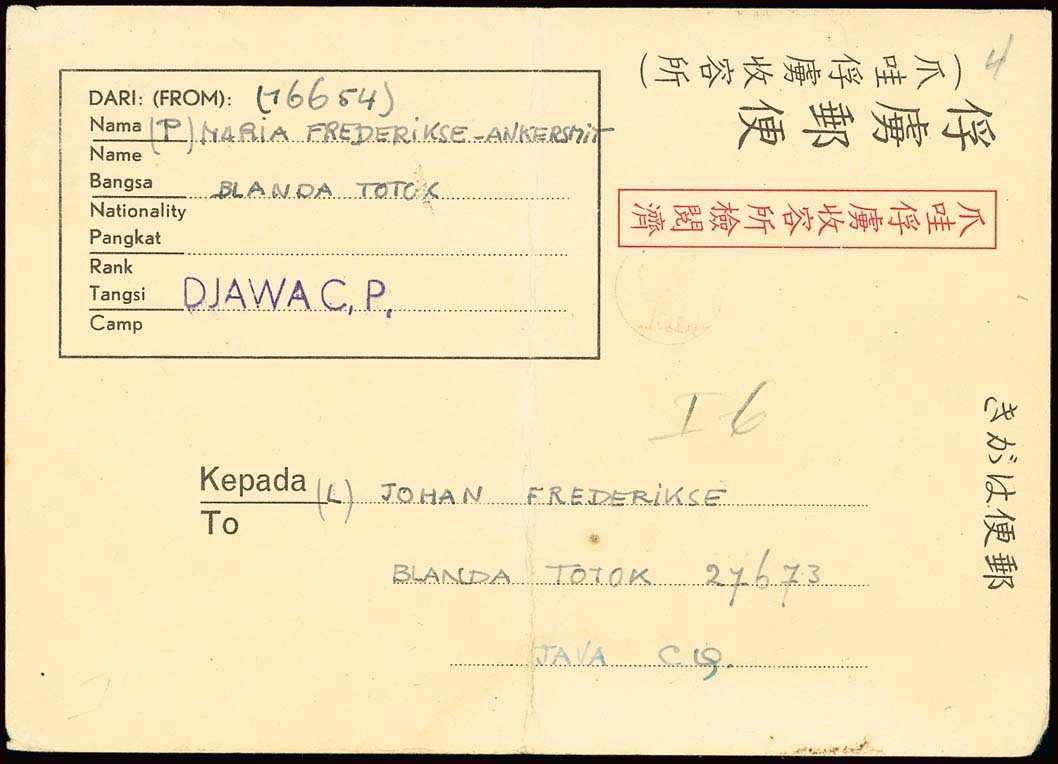 4
(爪哇俘虜收容所)
俘虜郵便
爪哇俘虜收容所檢閲濟
郵便はがき
DARI: (FROM): (16654)
Nama (P) MARIA FREDERIKSE-ANKERSMIT
Name
Bangsa BLANDA TOTOK
Nationality
Pangkat
Rank
Tangsi DJAWA C. P.
Camp
I 6
Kepada (L) JOHAN FREDERIKSE
To
BLANDA TOTOK 27673
JAVA